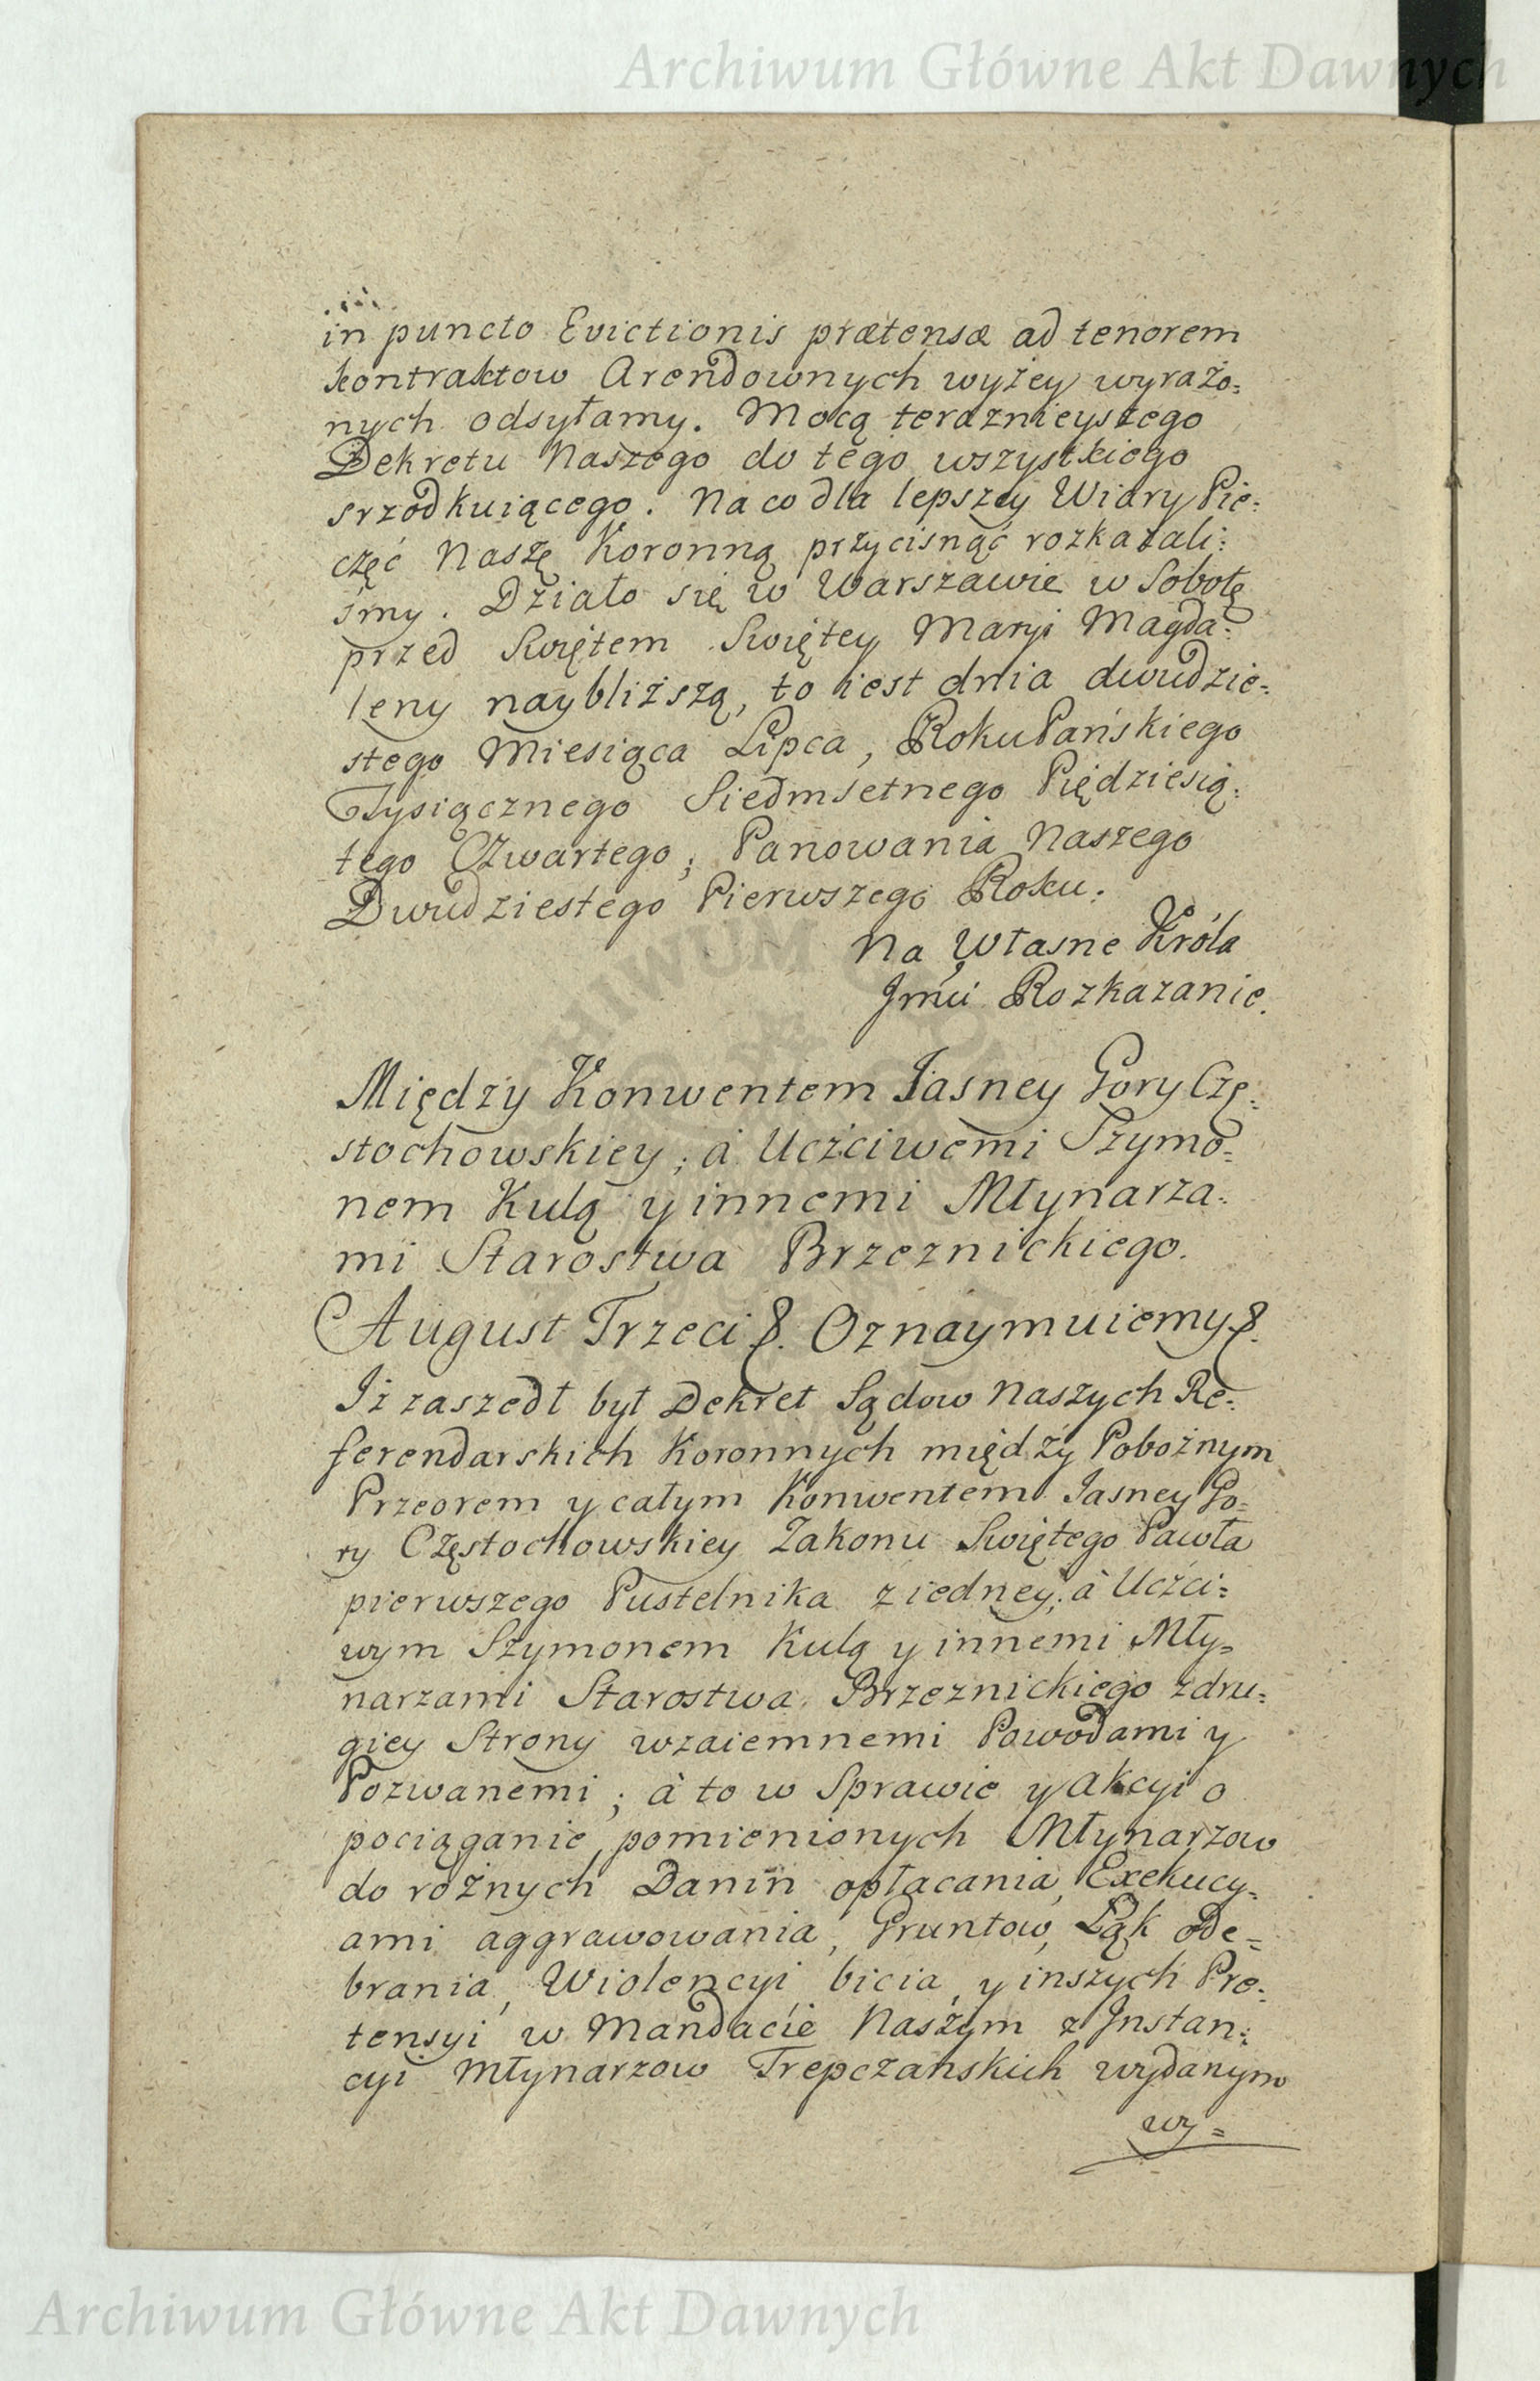 Archiwum Główne Akt Dawnych
in puncto Evictionis prætensæ ad tenorem
kontraktow Arendownych wyżey wyrażo:
nych odsyłamy. Mocą teraznieyszego
Dekretu Naszego do tego wszystkiego
srzodkuiącego. Na co dla lepszey Wiary Pie:
częć Naszę Koronną przycisnąć rozkazali:
śmy. Działo się w Warszawie w Sobotę
przed Swiętem Swiętey Maryi Magda:
leny naybliższą, to iest dnia dwudzie:
stego Miesiąca Lipca, Roku Pańskiego
Tysiącznego Siedmsetnego Piędziesią:
tego Czwartego; Panowania Naszego
Dwudziestego Pierwszego Roku.
Na Własne Króla
Jmći Rozkazanie.
Między Konwentem Jasney Gory Czę:
stochowskiey; à Uczciwemi Szymo:
nem Kulą y innemi Młynarza:
mi Starostwa Brzeznickiego.
August Trzeci &. Oznaymuiemy &.
Iż zaszedł był Dekret Sądow Naszych Re:
ferendarskich Koronnych między Pobożnym
Przeorem y całym Konwentem Jasney Go=
ry Częstochowskiey Zakonu Swiętego Pawła
pierwszego Pustelnika z iedney; à Uczci=
wym Szymonem Kulą y innemi Mły=
narzami Starostwa Brzeznickiego z dru:
giey Strony wzaiemnemi Powodami y
Pozwanemi; à to w Sprawie y Akcyi o
pociąganie pomienionych Młynarzow
do rożnych Danin opłacania, Exekucy=
ami aggrawowania, Gruntow, Łąk ode=
brania, Wiolencyi bicia, y inszych Pre:
tensyi w Mandacie Naszym z Instan:
cyi Młynarzow Trepczańskich wydanym
wy=
Archiwum Główne Akt Dawnych